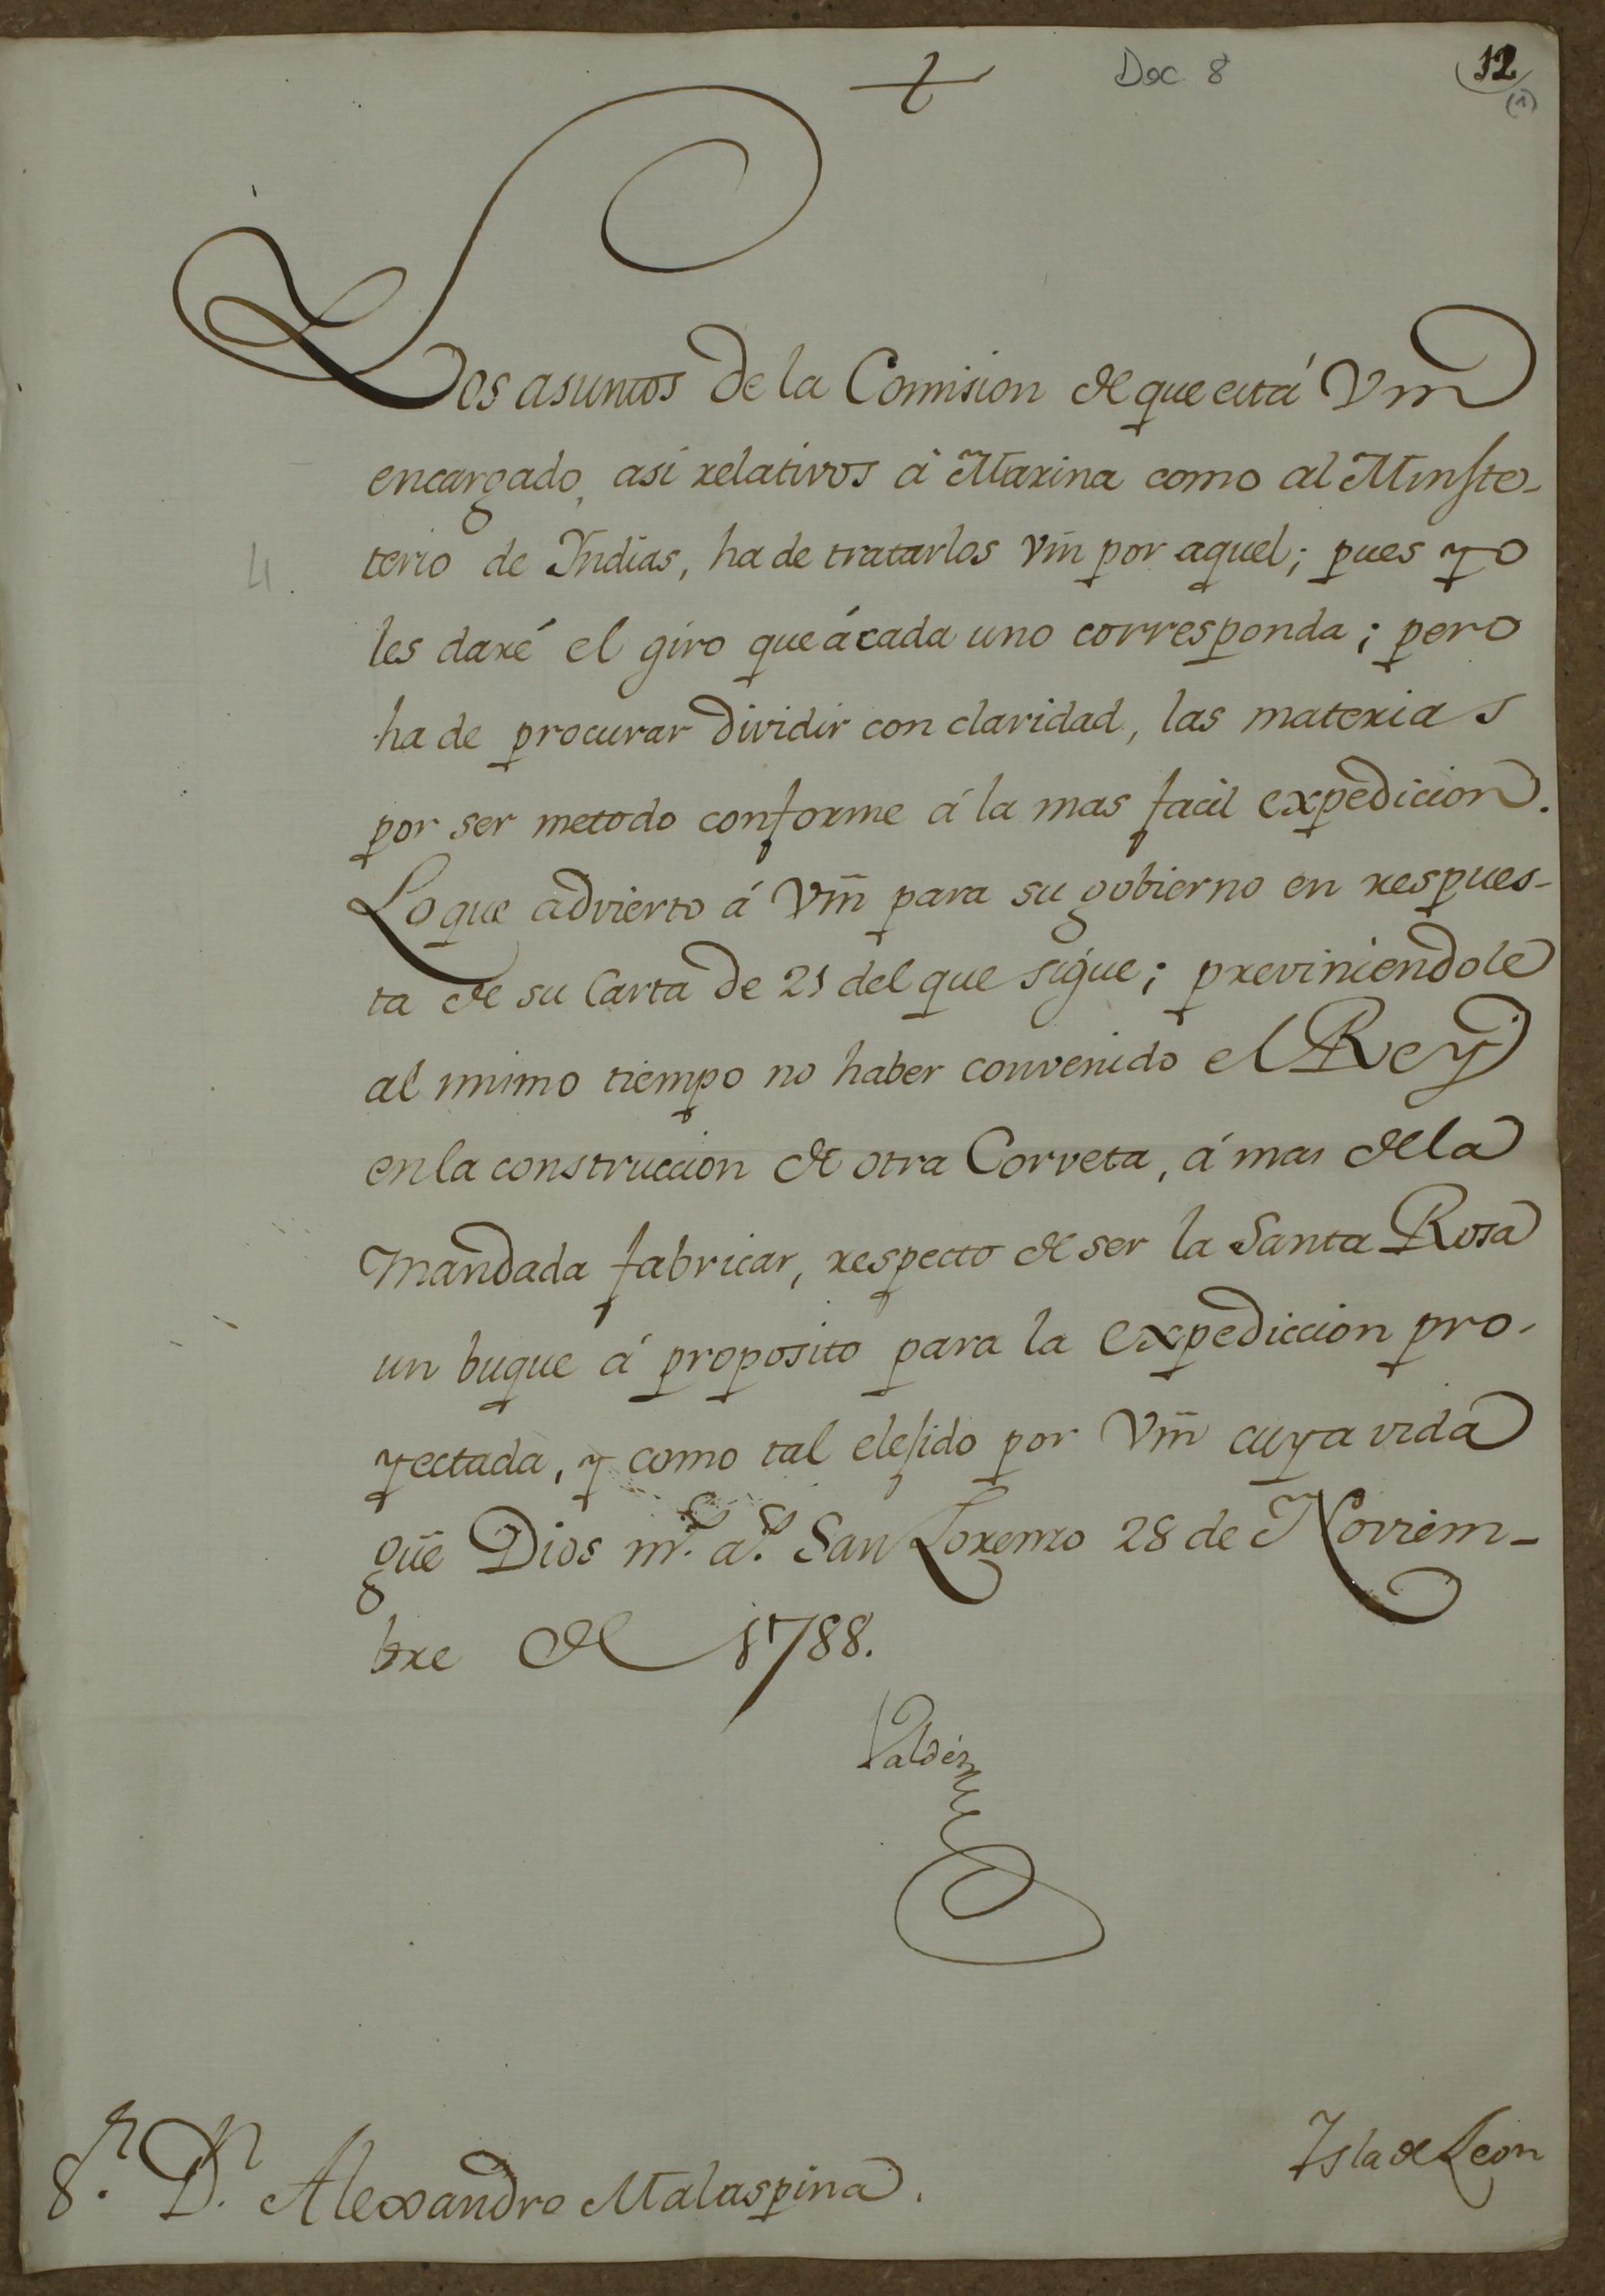 Doc. 8
12
(1)
Los asuntos de la Comision de que está Vm
encargado, asi relativos á Marina como al Minste-
terio de Indias, ha de tratarlos Vm̃ por aquel; pues yo
4.
les daré el giro que á cada uno corresponda; pero
ha de procurar dividir con claridad, las materias
por ser metodo conforme á la mas facil expedicion.
Lo que advierto á Vm̃ para su gobierno en respues-
ta de su Carta de 21 del que sigue; previniendole
al mimo tiempo no haber convenido el Rey
en la construccion de otra Corveta, á mas de la
mandada fabricar, respecto de ser la Santa Rosa
un buque á proposito para la expediccion pro-
yectada, y como tal elesido por Vm̃ cuya vida
gũe Dios m.s a.s San Lorenzo 28 de Noviem-
bre de 1788.
Valdés
S.r D.n Alexandro Malaspina.
Isla de Leon